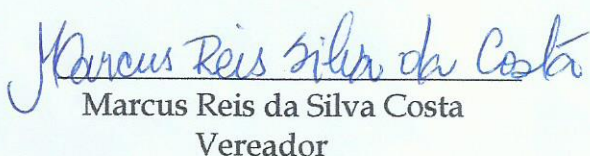 Marcus Reis Silva da Costa
Marcus Reis da Silva Costa
Vereador